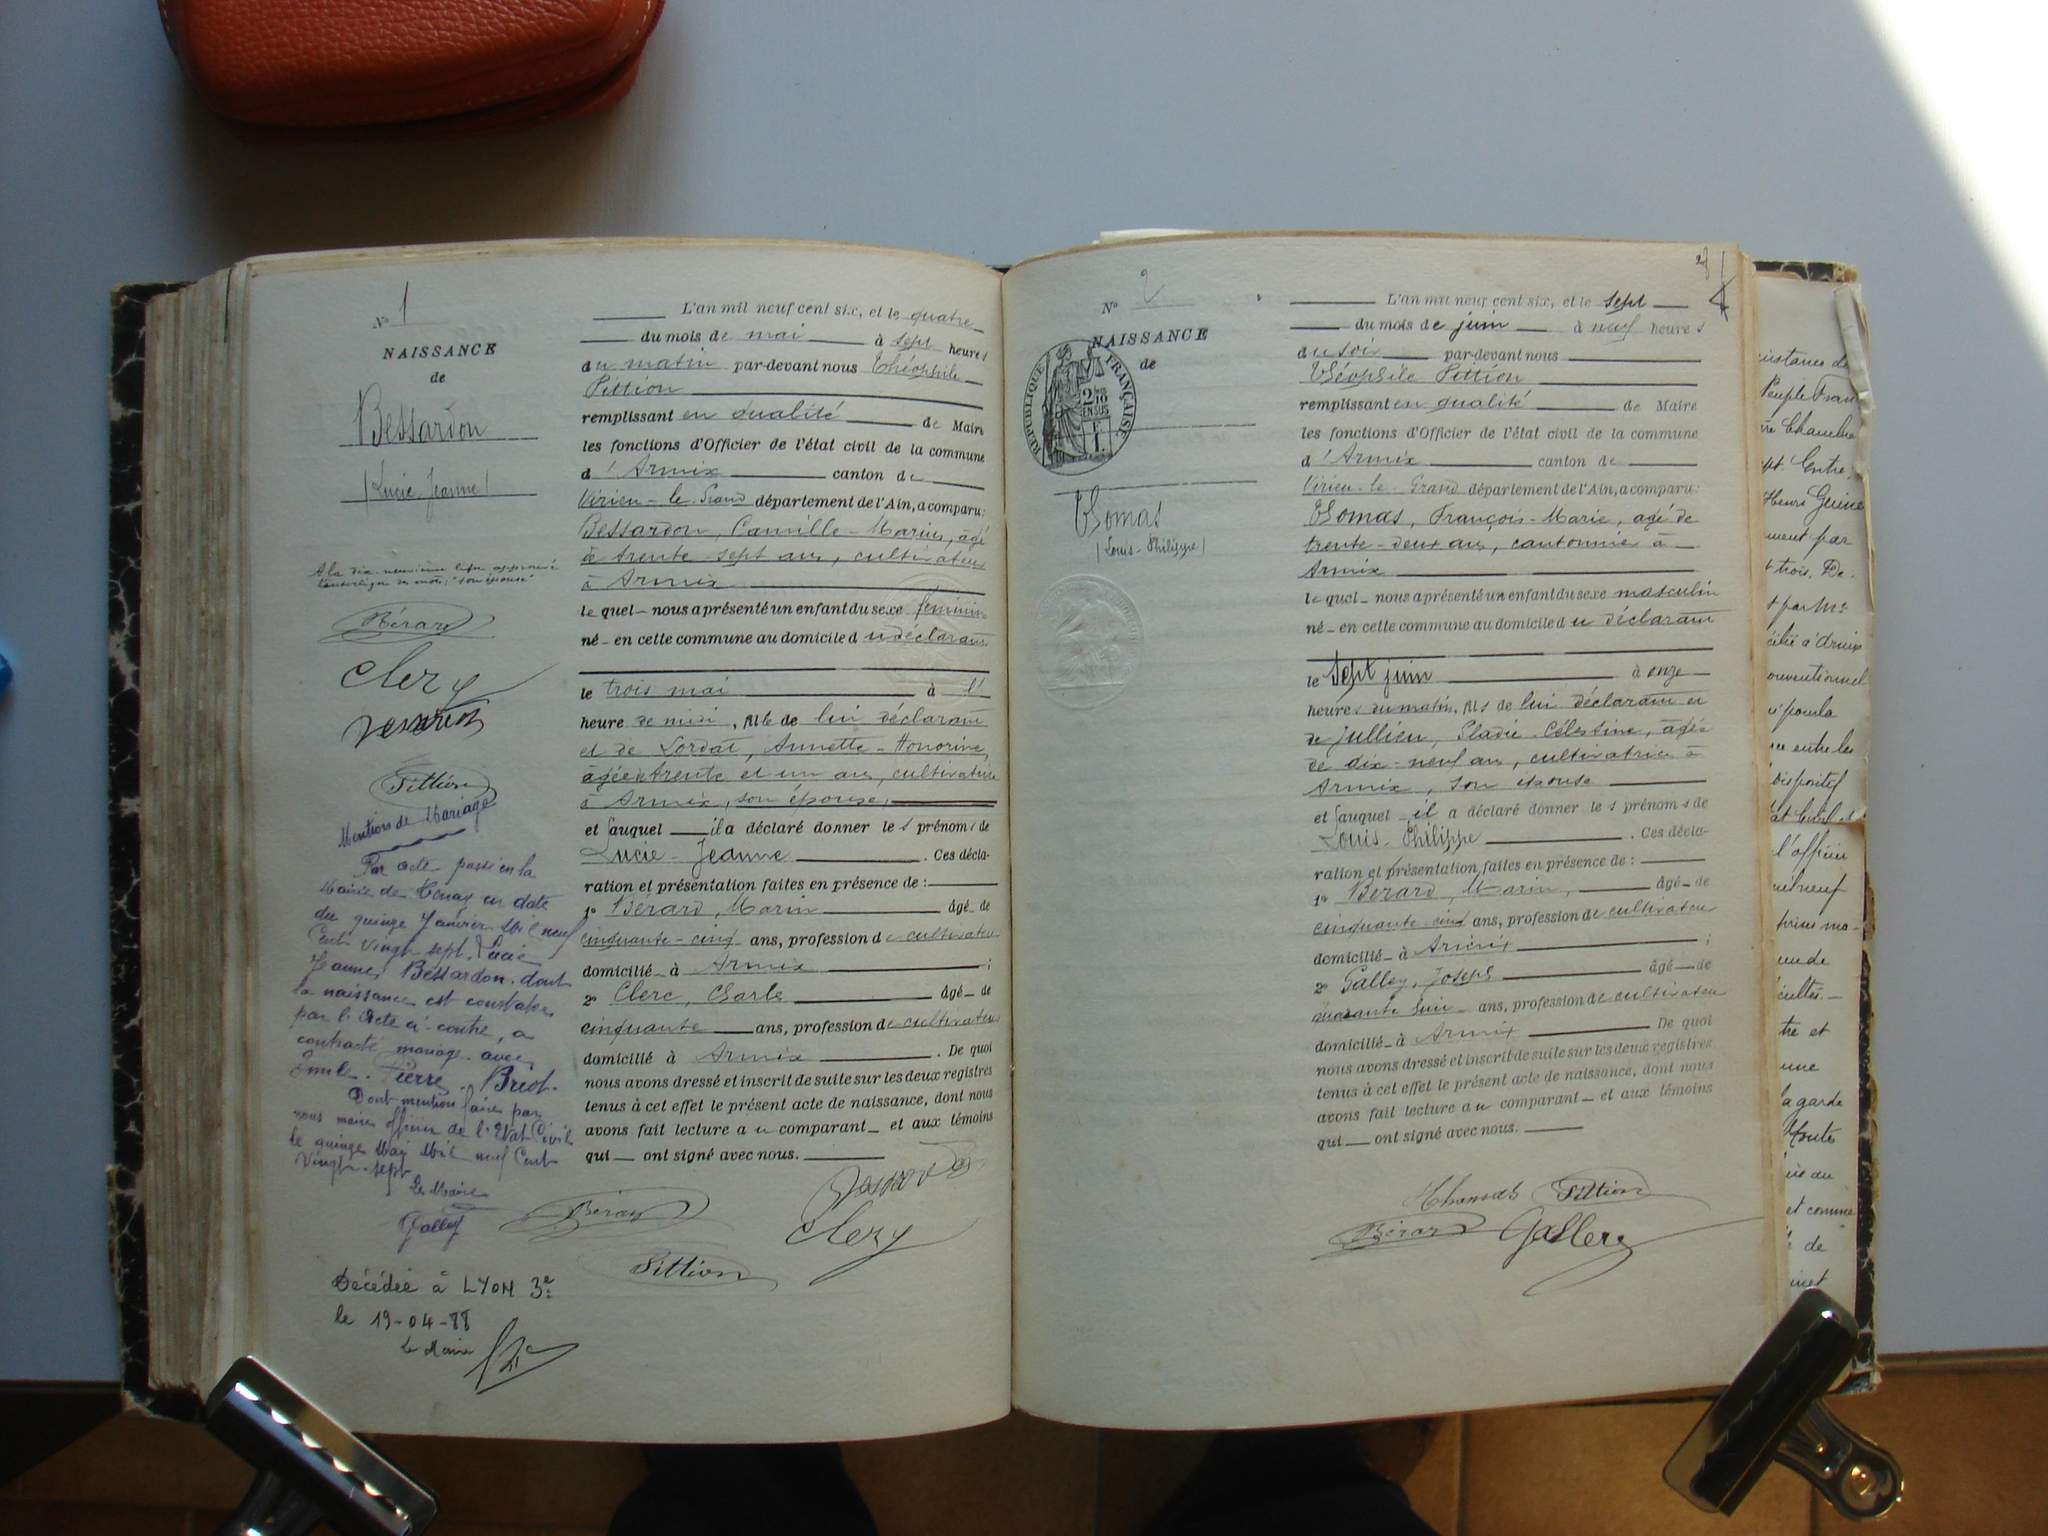 Nº 1
NAISSANCE
de
Bessardon
(Lucie Jeanne)
A la dix-neuvième ligne approuvé
mots: "son épouse"
Bérard
Clerc
Bessardon
Pittion
Mention de Mariage
Par acte passé en la
Mairie de en date
du quinze Janvier Mil neuf
Cent Vingt sept, Lucie
Jeanne, Bessardon, dont
la naissance est constatée
par l'Acte ci-contre, a
contracté mariage avec
Emile. Pierre. Briot.
Dont mention faite par
nous maire officier de l'Etat Civil
le quinze Mai Mil neuf Cent
Vingt-sept
Le Maire
Galley
Décédée à LYON 3e
le 19-04-88
Le Maire
L'an mil neuf cent six, et le quatre
du mois de mai à sept heures
du matin par-devant nous Théophile
Pittion
remplissant en qualité de Maire
les fonctions d'Officier de l'état civil de la commune
d'Armix canton de
Virieu-le-Grand département de l'Ain, a comparu:
Bessardon, Camille-Marius, âgé
de trente-sept ans, cultivateur
à Armix
lequel nous a présenté un enfant du sexe féminin
né en cette commune au domicile du déclarant
le trois mai à l'
heure de midi, fille de lui déclarant
et de Lordat, Annette-Honorine,
âgée trente et un ans, cultivatrice
à Armix, son épouse,
et auquel il a déclaré donner les prénoms de
Lucie-Jeanne. Ces décla-
ration et présentation faites en présence de:
1º Bérard, Marin âgé de
cinquante-cinq ans, profession de cultivateur
domicilié à Armix;
2º Clerc, Charle âgé de
cinquante ans, profession de cultivateur
domicilié à Armix. De quoi
nous avons dressé et inscrit de suite sur les deux registres
tenus à cet effet le présent acte de naissance, dont nous
avons fait lecture au comparant et aux témoins
qui ont signé avec nous.
Bessardon
Bérard
Clerc
Pittion
Nº 2
NAISSANCE
de
RÉPUBLIQUE FRANÇAISE
2/10 EN SUS
1 F
Thomas
(Louis-Philippe)
L'an mil neuf cent six, et le sept
du mois de juin à neuf heures
du soir par-devant nous
Théophile Pittion
remplissant en qualité de Maire
les fonctions d'Officier de l'état civil de la commune
d'Armix canton de
Virieu-le-Grand département de l'Ain, a comparu:
Thomas, François-Marie, âgé de
trente-deux ans, cantonnier à
Armix
lequel nous a présenté un enfant du sexe masculin
né en cette commune au domicile du déclarant
le sept juin à onze
heures du matin, fils de lui déclarant et
de Jullien, Eladie-Célestine, âgée
de dix-neuf ans, cultivatrice à
Armix, son épouse
et auquel il a déclaré donner les prénoms de
Louis-Philippe. Ces décla-
ration et présentation faites en présence de:
1º Bérard, Marin, âgé de
cinquante-cinq ans, profession de cultivateur
domicilié à Armix;
2º Galley, Joseph âgé de
quarante huit ans, profession de cultivateur
domicilié à Armix. De quoi
nous avons dressé et inscrit de suite sur les deux registres
tenus à cet effet le présent acte de naissance, dont nous
avons fait lecture au comparant et aux témoins
qui ont signé avec nous.
Thomas Pittion
Bérard Galley
Peuple Fran
Henri
ment par
trois. De
à Armix
pour la
entre les
l'officier
neuf
une
la garde
Toutes
et comme
de